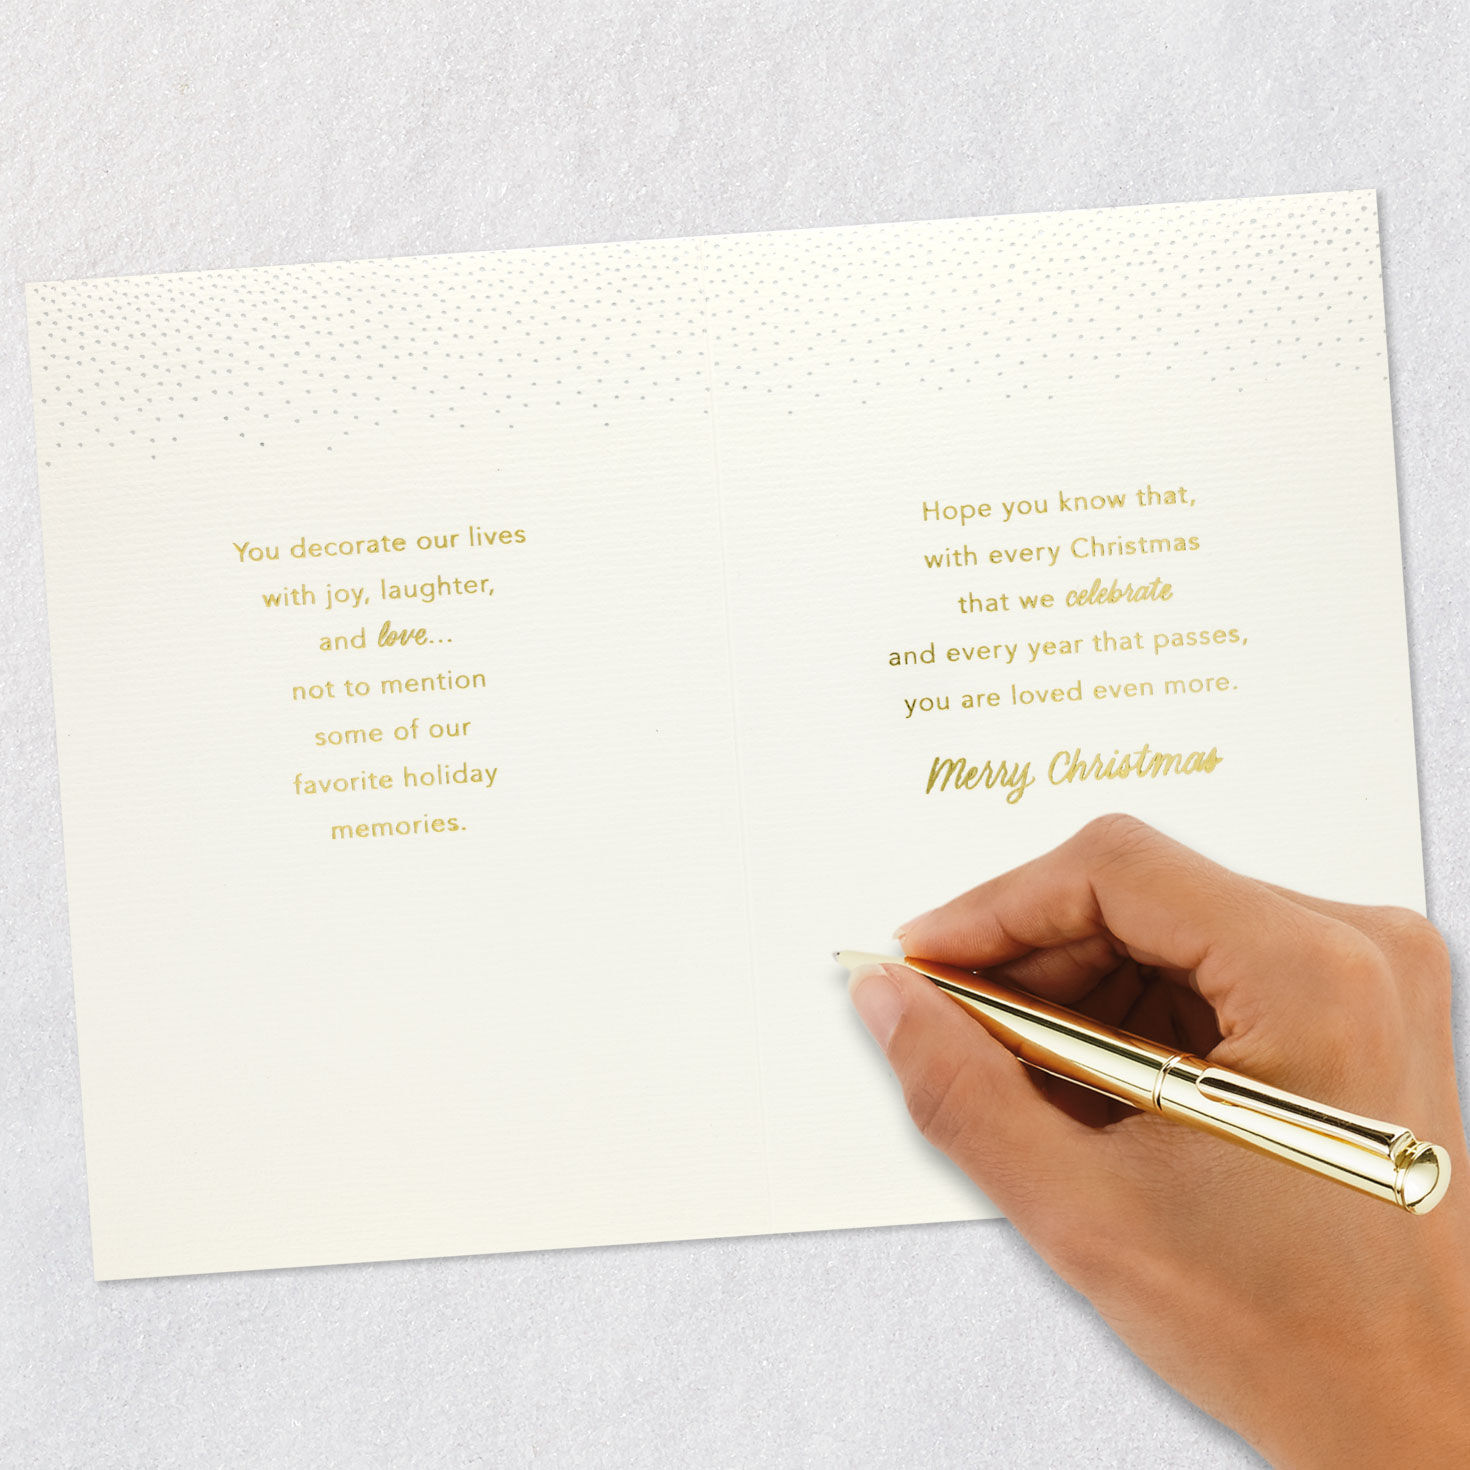 You decorate our lives
with joy, laughter,
and love...
not to mention
some of our
favorite holiday
memories.
Hope you know that,
with every Christmas
that we celebrate
and every year that passes,
you are loved even more.
Merry Christmas